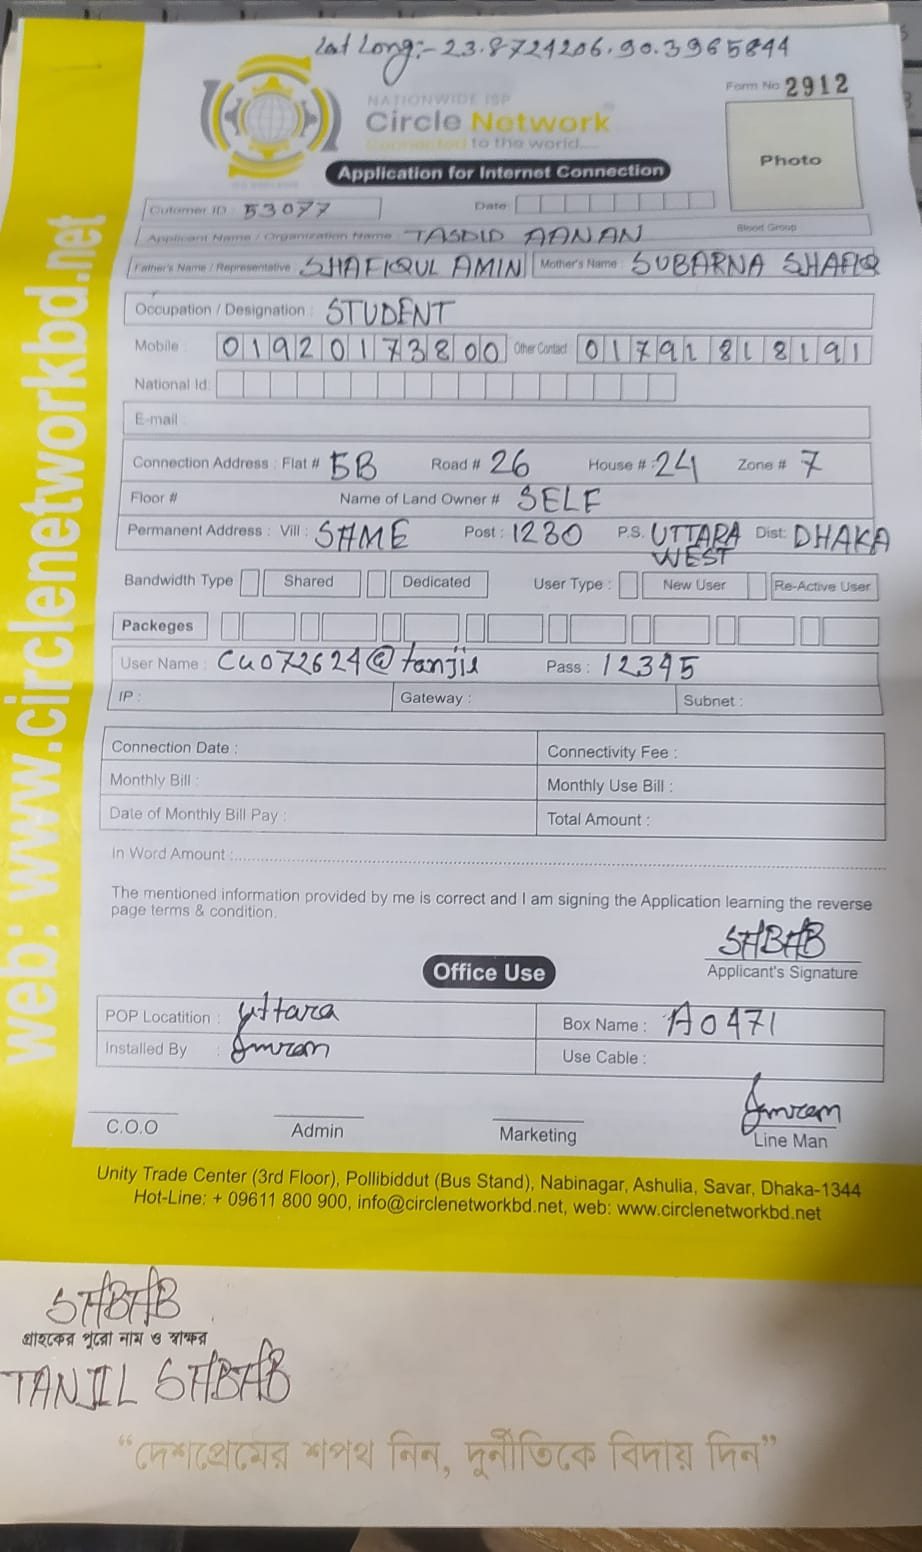 Lat Long:- 23.8724206, 90.3965844
Form No 2912
NATIONWIDE ISP
Circle Network
Connected to the world....
Photo
Application for Internet Connection
Cutomer ID : 53077 Date:
Applicant Name / Organization Name : TASDID AANAN Blood Group
Father's Name / Representative : SHAFIQUL AMIN Mother's Name : SUBARNA SHAFIQ
Occupation / Designation : STUDENT
Mobile : 01920173800 Other Contact : 01791818191
National Id:
E-mail :
Connection Address : Flat # 5B Road # 26 House #: 24 Zone # 7
Floor # Name of Land Owner # SELF
Permanent Address : Vill : SAME Post : 1230 P.S. UTTARA WEST Dist: DHAKA
Bandwidth Type Shared Dedicated User Type : New User Re-Active User
Packeges
User Name : cu072624@tanjil Pass : 12345
IP : Gateway : Subnet :
Connection Date : Connectivity Fee :
Monthly Bill : Monthly Use Bill :
Date of Monthly Bill Pay : Total Amount :
In Word Amount :
The mentioned information provided by me is correct and I am signing the Application learning the reverse
page terms & condition.
SABAB
Applicant's Signature
Office Use
POP Locatition : Uttara Box Name : A0471
Installed By : Imran Use Cable :
Imran
C.O.O Admin Marketing Line Man
Unity Trade Center (3rd Floor), Pollibiddut (Bus Stand), Nabinagar, Ashulia, Savar, Dhaka-1344
Hot-Line: + 09611 800 900, info@circlenetworkbd.net, web: www.circlenetworkbd.net
web: www.circlenetworkbd.net
SABAB
গ্রাহকের পুরো নাম ও স্বাক্ষর
TANJIL SABAB
“দেশপ্রেমের শপথ নিন, দুর্নীতিকে বিদায় দিন”